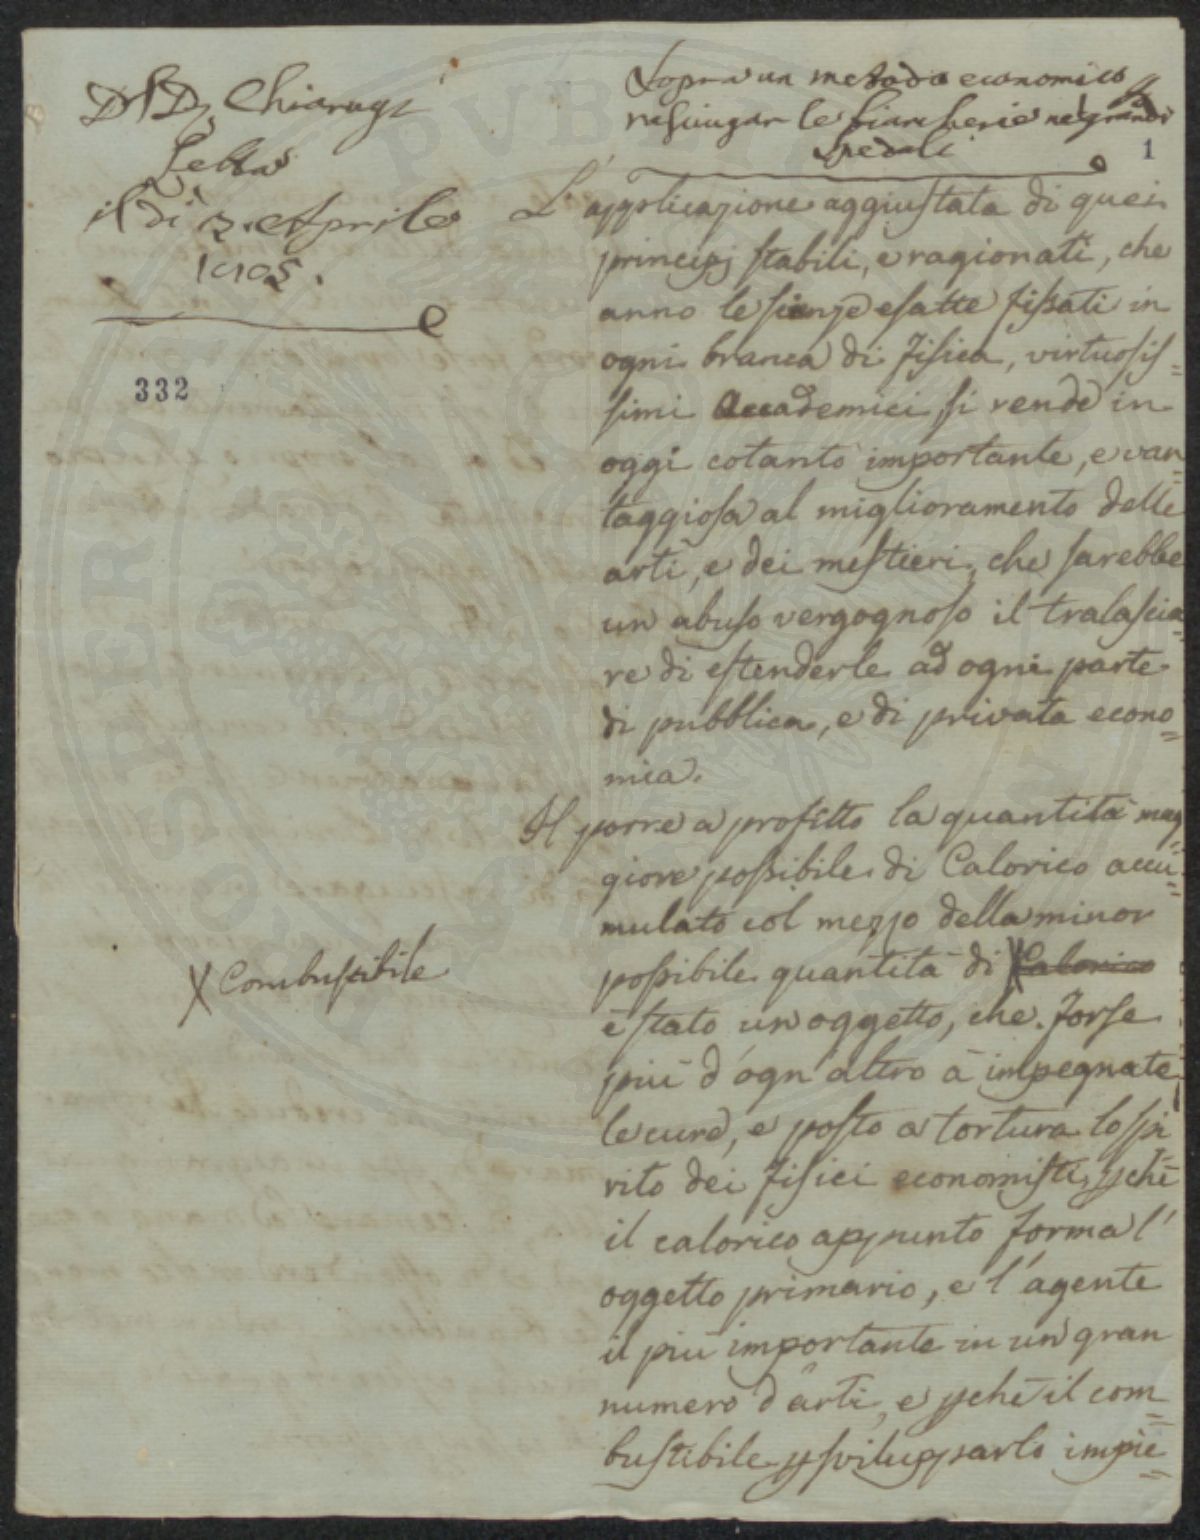 Dr. D. Chiarugi
Letta
il dì 3. Aprile
1805.
332
Sopra un metodo economico
rasciugar le biancherie ne' grandi
Spedali
1
L'applicazione aggiustata di quei
principj stabili, e ragionati, che
anno le sienze esatte fissati in
ogni branca di fisica, virtuosis=
simi Accademici, si rende in
oggi cotanto importante, e van=
taggiosa al miglioramento delle
arti, e dei mestieri, che sarebbe
un abuso vergognoso il tralascia=
re di estenderle ad ogni parte
di pubblica, e di privata econo=
mia.
Il porre a profitto la quantità mag=
giore possibile di Calorico accu=
mulato col mezzo della minor
possibile quantità di X Calorico
X Combustibile
è stato un oggetto, che forse
più d'ogn'altro à impegnate
le cure, e posto a tortura lo spi
rito dei fisici economisti, pchè
il calorico appunto forma l'
oggetto primario, e l'agente
il più importante in un gran
numero d'arti, e pchè il com=
bustibile p svilupparlo impie=